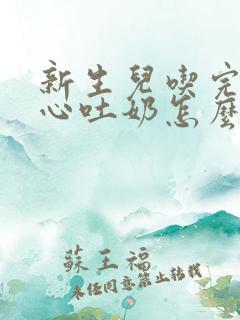 新生兒喫完
心吐奶怎麼
蘇王福
未經同意禁止轉載